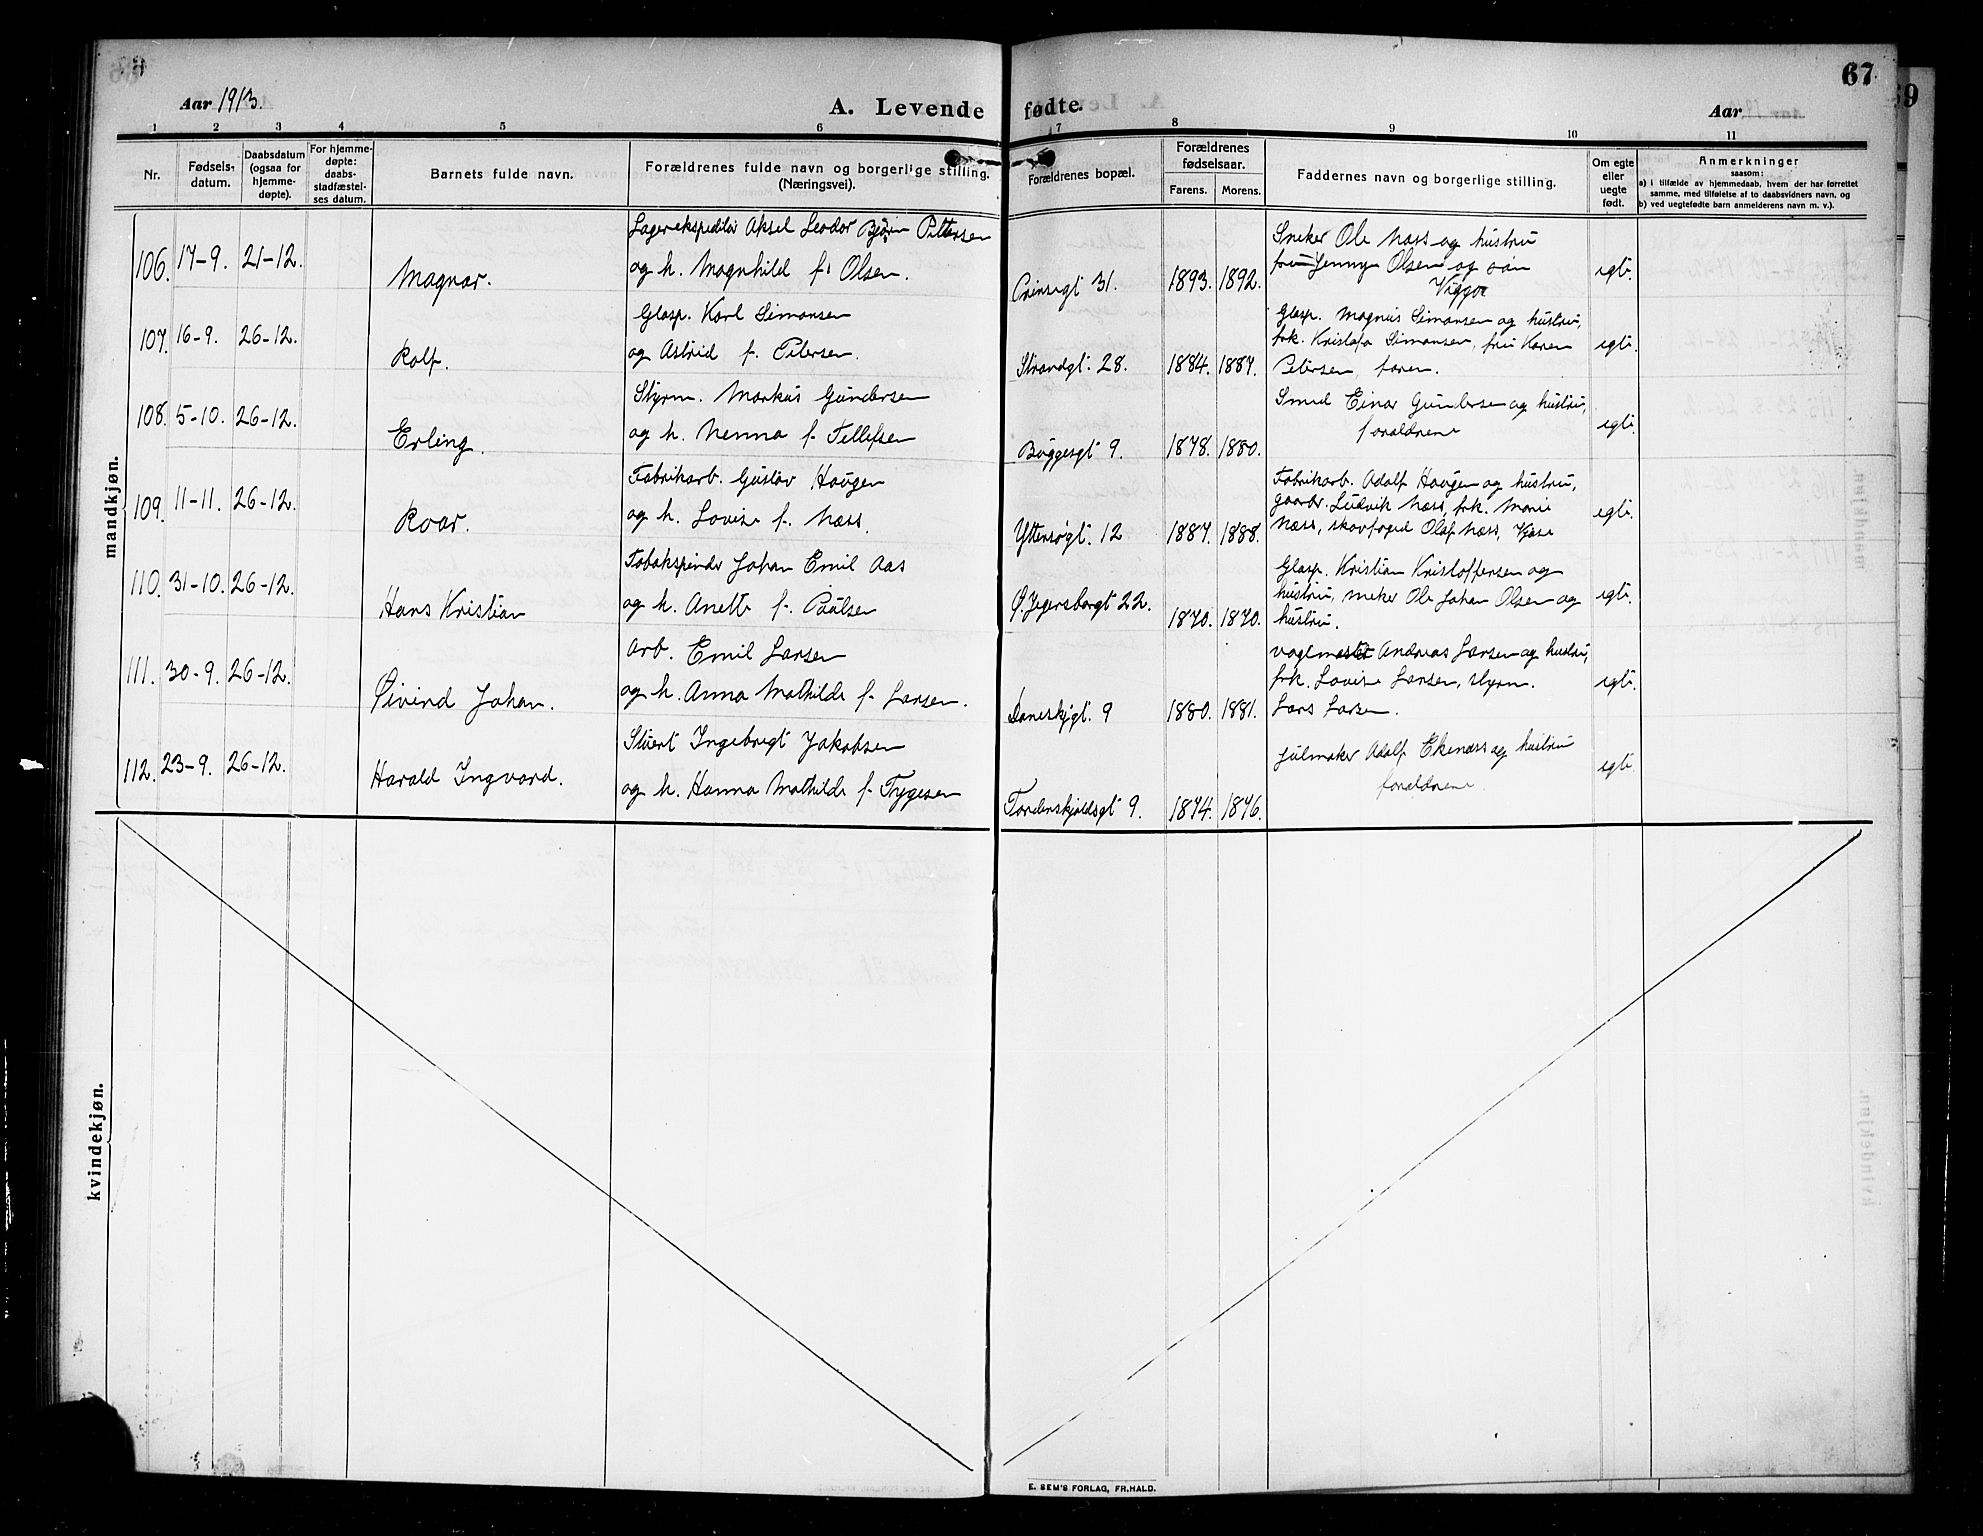 67
Aar 1913.
A. Levende fødte.
Aar
1 2 3 4 5 6 7 8 9 10 11
Nr.
Fødsels-
datum.
Daabsdatum
(ogsaa for
hjemme-
døpte).
For hjemme-
døpte:
daabs-
stadfæstel-
ses datum.
Barnets fulde navn.
Forældrenes fulde navn og borgerlige stilling.
(Næringsvei).
Forældrenes bopæl.
Forældrenes
fødselsaar.
Farens. Morens.
Faddernes navn og borgerlige stilling.
Om egte
eller
uegte
født.
Anmerkninger
saasom:
a) i tilfælde av hjemmedaab, hvem der har forrettet
samme, med tilføielse af to daabsvidners navn, og
b) ved uegtefødte barn anmelderens navn m. v.).
mandkjøn.
106. 17-9. 21-12.
Magnar.
Lagerekspeditør Aksel Leodor Bjørn Pettersen
og h. Magnhild f. Olsen.
Prinsegt 31.
1893. 1892.
Sneker Ole Næss og hustru
fru Jenny Olsen og søn
Viggo
egte.
107. 16-9. 26-12.
Rolf.
Glasp. Karl Simonsen
og Astrid f. Petersen.
Strandgt. 28.
1884. 1887.
Glasp. Magnus Simonsen og hustru,
frk. Kristofa Simonsen, fru Karen
Petersen faren.
egte.
108. 5-10. 26-12.
Erling.
Styrm. Markus Gundersen
og h. Nenna f. Tellefsen
Buggesgt 9.
1878. 1880.
Smed Einar Gundersen og hustru,
forældrene
egte.
109. 11-11. 26-12.
Roar.
Fabrikarb. Gustav Haugen
og h. Lovise f. Næss.
Yttersøgt. 12
1887. 1888.
Fabrikarb. Adolf Haugen og hustru,
gaardbr. Ludvik Næss, frk. Marie
Næss, skovfoged Olaf Næss, Kjose
egte.
110. 31-10. 26-12.
Hans Kristian
Tobakspinder Johan Emil Aas
og h. Anette f. Paulsen
Ø. Jegersborgt 22.
1870. 1870.
Glasp. Kristian Kristoffersen og
hustru, sneker Ole Johan Olsen og
hustru.
egte.
111. 30-9. 26-12.
Øivind Johan.
Arb. Emil Larsen
og h. Anna Mathilde f. Larsen.
Daneskjgt. 9
1880. 1881.
Andreas Larsen og hustru,
frk. Lovise Larsen, styrm.
Lars Larsen.
egte.
112. 23-9. 26-12.
Harald Ingvard.
Stuert Ingebregt Jakobsen
og h. Hanna Mathilde f. Trygesen
Tordenskjoldsgt 9.
1874. 1876.
Julmaker Adolf Ekenæss og hustru
forældrene
egte
kvindekjøn.
E. SEM'S FORLAG, FR.HALD.